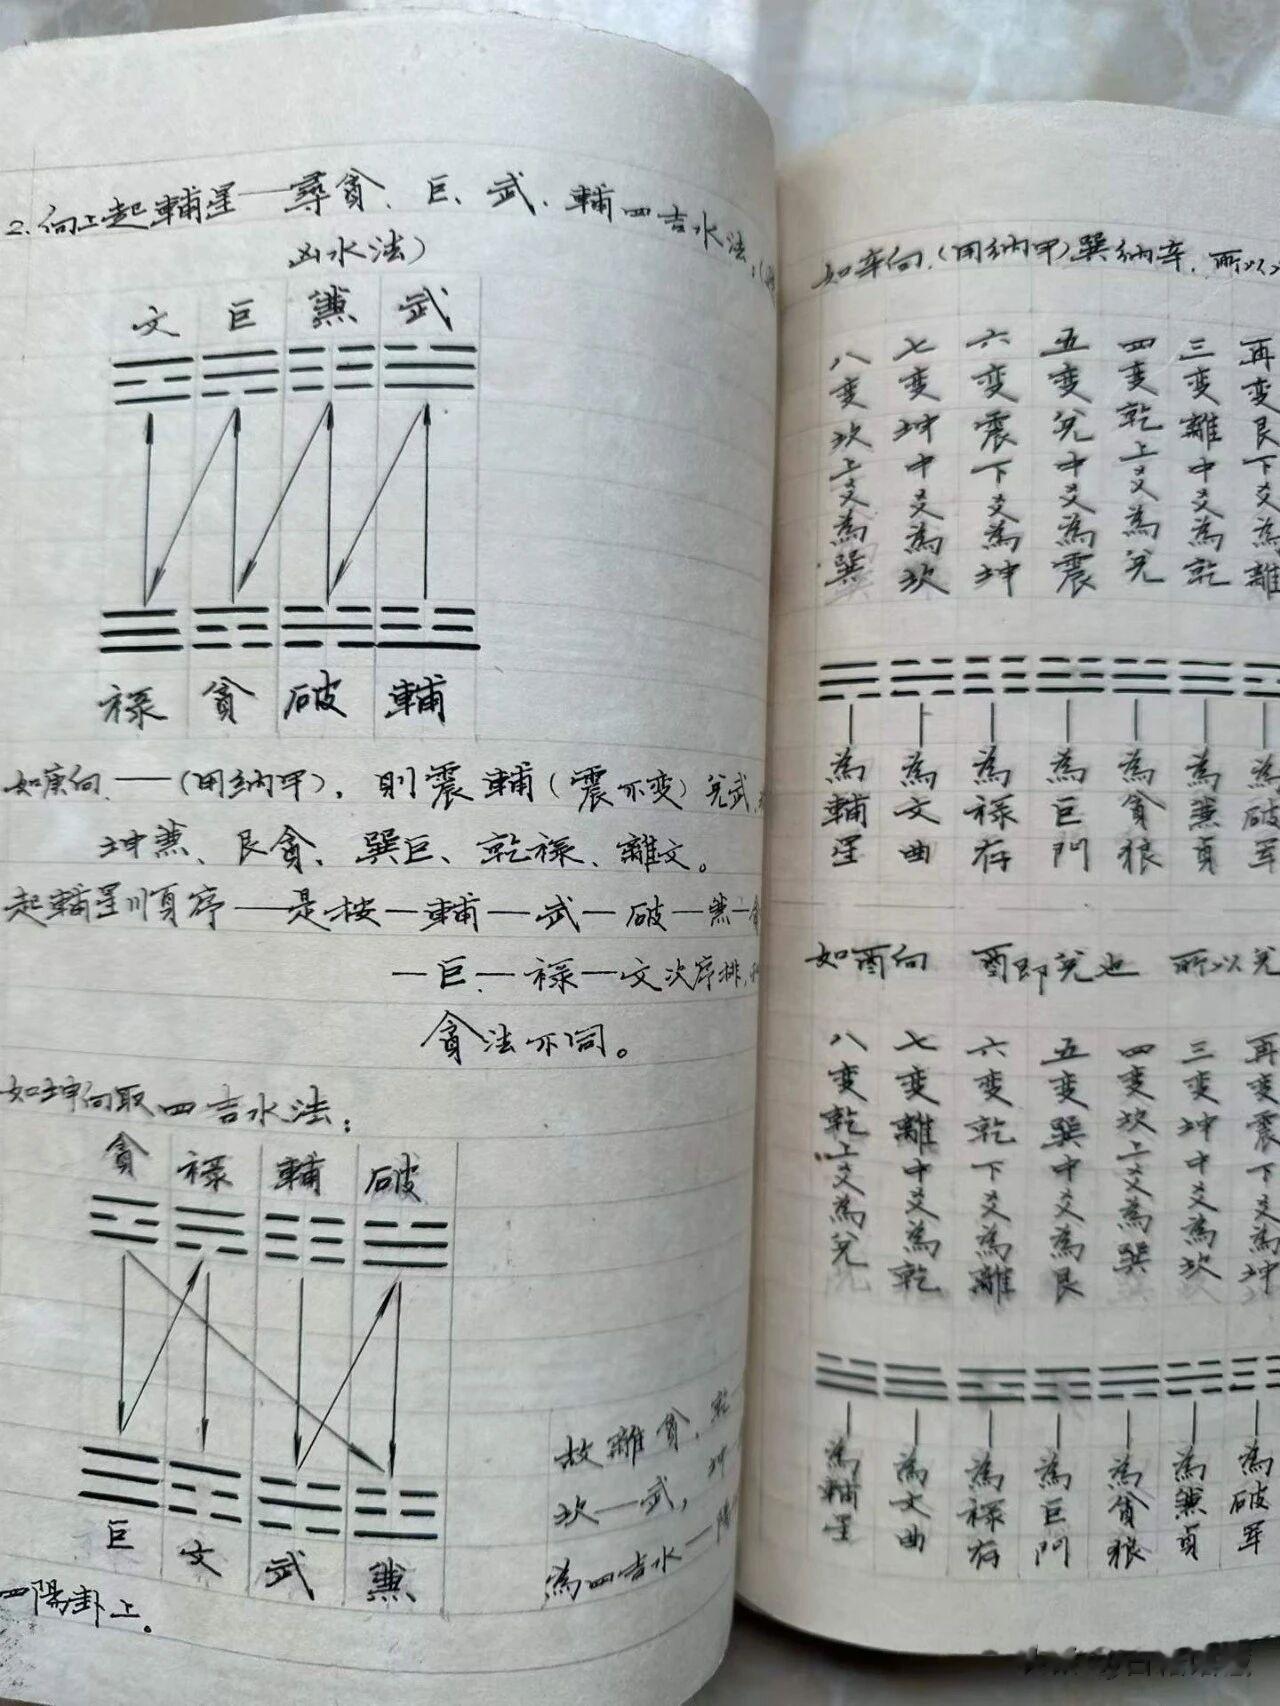 2.向上起輔星—尋貪、巨、武、輔四吉水法:(
凶水法)
文 巨 亷 武
祿 貪 破 輔
如庚向—(用纳甲),則震輔(震不变)兌武,
坤亷、艮貪、巽巨、乾祿、離文。
起輔星順序—是按—輔—武—破—亷—貪
—巨—祿—文次序排,
貪法不同。
如坤向取四吉水法:
貪 祿 輔 破
巨 文 武 亷
故離貪,乾
坎—武,坤
為四吉水—陽
四陽卦上。
如辛向,(用纳甲)巽纳辛,所以
再变艮下爻為離
三变離中爻為乾
四变乾上爻為兌
五变兌中爻為震
六变震下爻為坤
七变坤中爻為坎
八变坎上爻為巽
為破军
為亷貞
為貪狼
為巨門
為祿存
為文曲
為輔星
如酉向 酉即兌也 所以兌
再变震下爻為坤
三变坤中爻為坎
四变坎上爻為巽
五变巽中爻為艮
六变乾下爻為離
七变離中爻為乾
八变乾上爻為兌
為破军
為亷貞
為貪狼
為巨門
為祿存
為文曲
為輔星